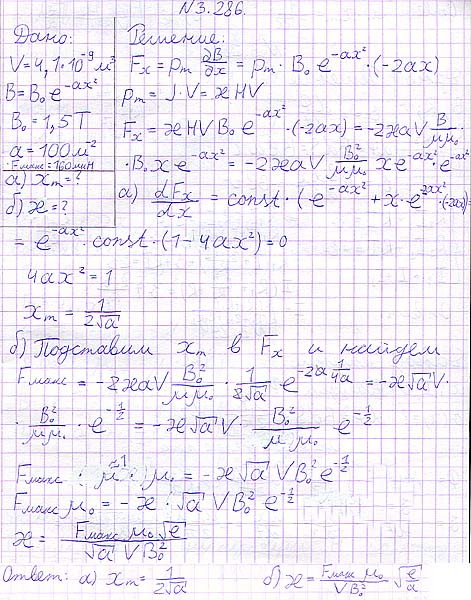 N3.286.
Дано:
V=4,1·10⁻⁹ м³
B=B₀e^(-ax²)
B₀=1,5T
a=100м⁻²
Fмакс=160мкН
а) xₘ=?
б) ϰ=?
Решение:
Fₓ=pₘ ∂B/∂x = pₘ·B₀e^(-ax²)·(-2ax)
pₘ=J·V=ϰHV
Fₓ=ϰHVB₀e^(-ax²)·(-2ax)=-2ϰaV B/μμ₀·
·B₀xe^(-ax²)=-2ϰaV B₀²/μμ₀ xe^(-ax²)·e^(-ax²)
а) dFₓ/dx = const·(e^(-ax²)+x·e^(-2ax²)·(-2ax)=
=e^(-ax²)·const·(1-4ax²)=0
4ax²=1
xₘ=1/(2√a)
б) Подставим xₘ в Fₓ и найдем
Fмакс=-2ϰaV B₀²/μμ₀ · 1/(2√a) e^(-2a 1/4a) = -ϰ√a V·
· B₀²/μμ₀ · e^(-1/2) = -ϰ√a V· B₀²/μμ₀ e^(-1/2)
Fмакс · μ^(≈1) · μ₀ = -ϰ√a VB₀²e^(-1/2)
Fмакс μ₀ = -ϰ·√a VB₀²e^(-1/2)
ϰ= Fмакс μ₀√e / √a VB₀²
Ответ: а) xₘ=1/(2√a) б) ϰ= Fмакс μ₀ / VB₀² √(e/a)